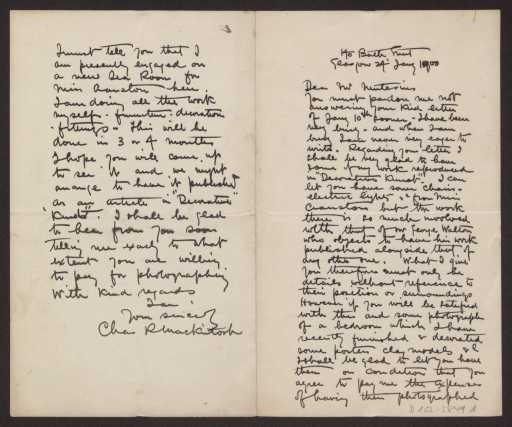 140 Bath Street
Glasgow 29th Jany 1900
Dear Mr Muthesius
You must pardon me not
answering your kind letter
of Jany 10th sooner. I have been
very busy - and when I am
busy I am never very eager to
write. Regarding your letter I
shall be very glad to have
some of my work reproduced
in "Decorative Kunst". I can
let you have some chairs -
electric lights &c from Miss
Cranston's but the work
there is so much involved
with that of Mr George Walton
who objects to have his work
published alongside that of
any other one. What I give
you therefore must only be
details without reference to
their position or surroundings
However if you will be satisfied
with this and some photographs
of a bedroom which I have
recently furnished & decorated
some posters clay models &c
I shall be glad to let you have
them on condition that you
agree to pay me the expenses
of having them photographed
3
I must tell you that I
am presently engaged on
a new Tea Room for
Miss Cranston here.
I am doing all the work
myself - furniture - decoration
- fittings - This will be
done in 3 or 4 months
I hope you will come up
to see it and we might
arrange to have it published
as an article in "Decorative
Kunst". I shall be glad
to hear from you soon
telling me exactly to what
extent you are willing
to pay for photographing
With kind regards
I am
Yours sincerely
Chas R Mackintosh